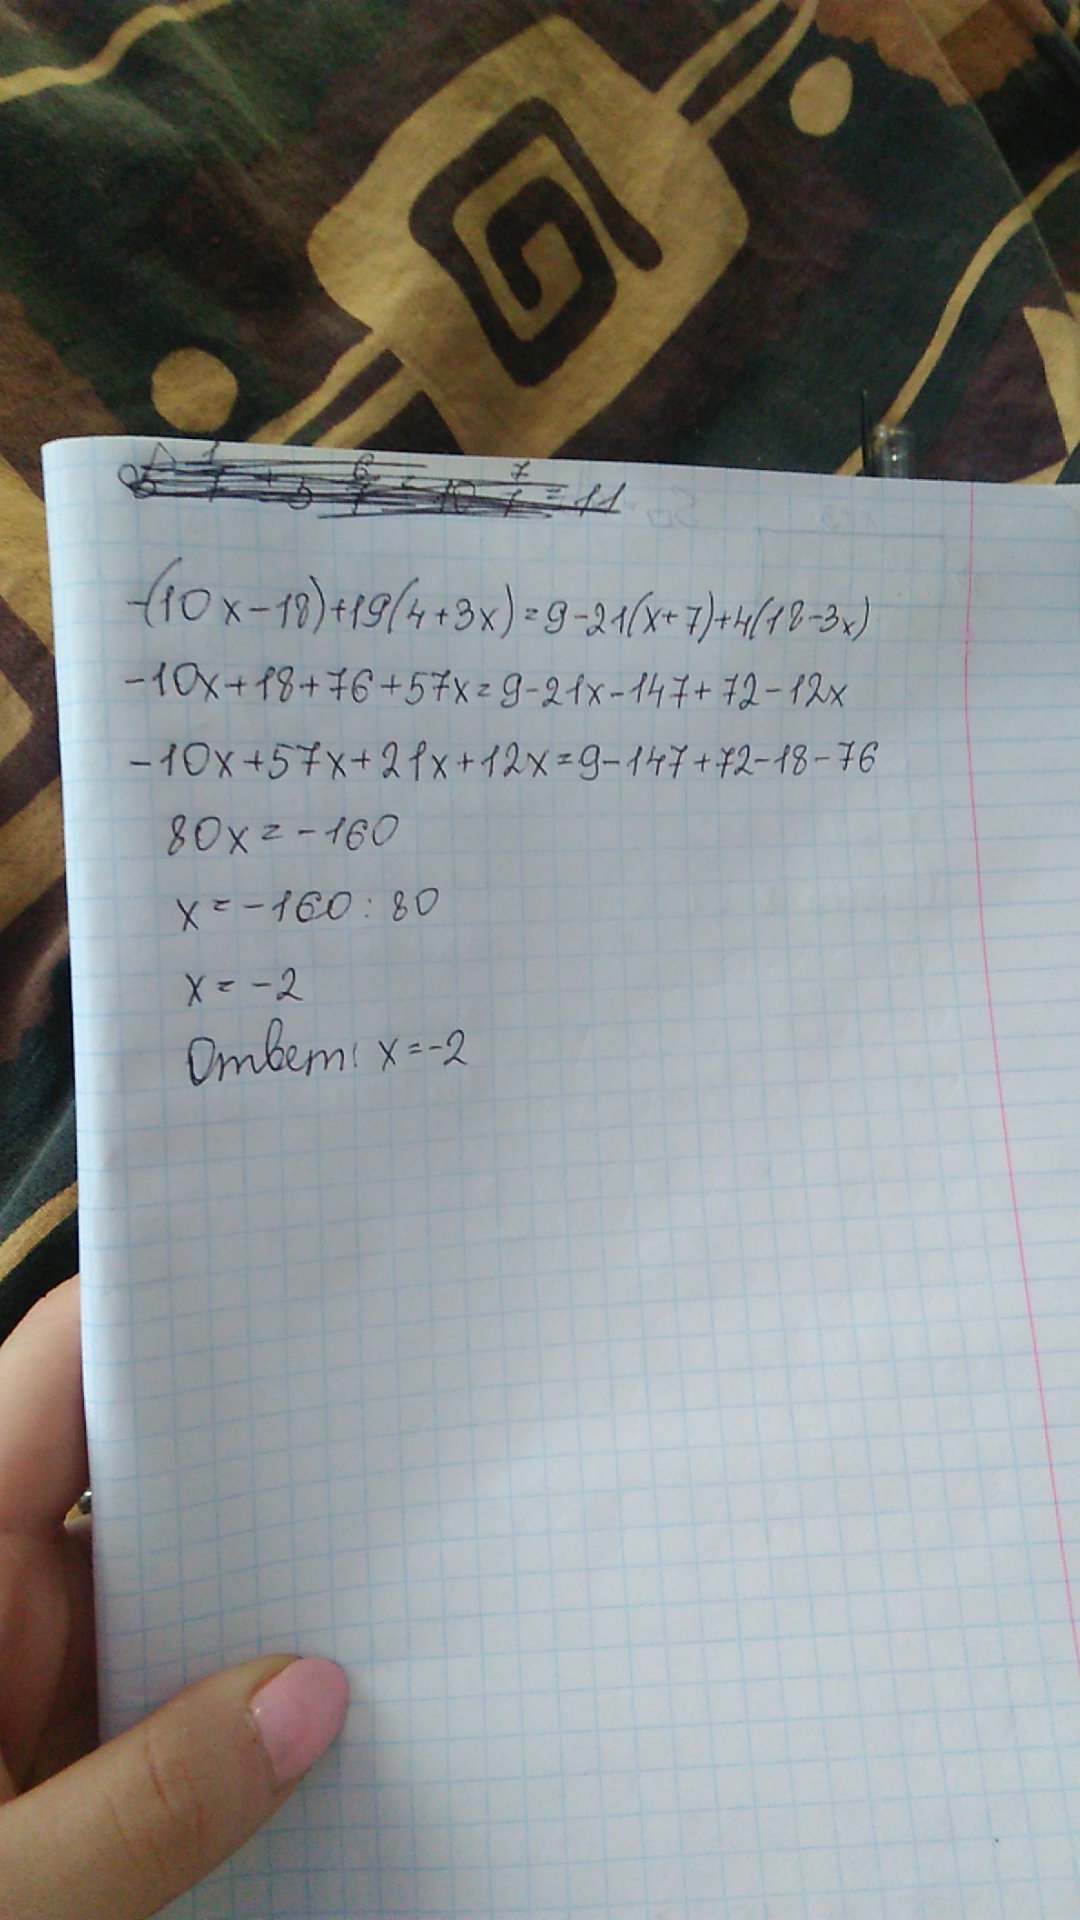 -(10x-18)+19(4+3x)=9-21(x+7)+4(18-3x)
-10x+18+76+57x=9-21x-147+72-12x
-10x+57x+21x+12x=9-147+72-18-76
80x=-160
x=-160:80
x=-2
Ответ: x=-2